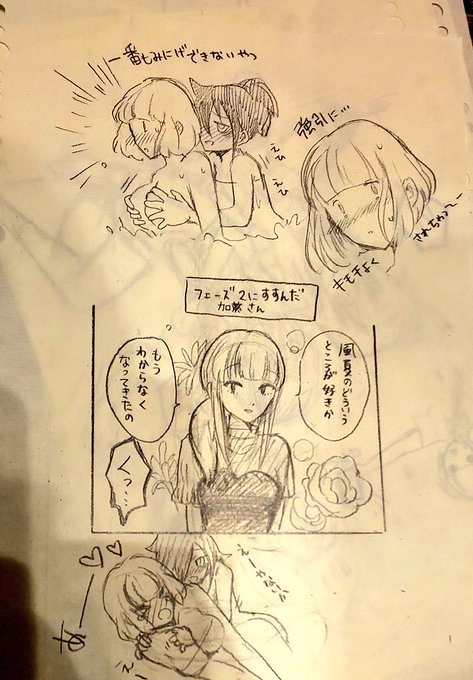 一番もみにげできないやつ
えひ
えひ
強引に…
キモチよく
されちゃって〜
フェーズ2にすすんだ
加蓮さん
風夏のどういう
ところが好きか
もう
わからなく
なってきたの
くっ…